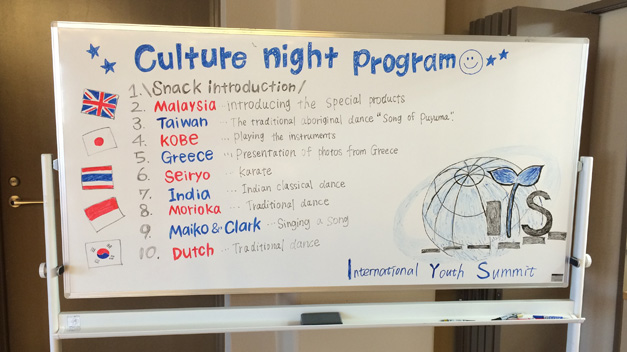 Culture night Program
1. \Snack introduction/
2. Malaysia … introducing the special products
3. Taiwan … The traditional aboriginal dance "Song of Puyuma".
4. KOBe … Playing the instruments
5. Greece … Presentation of photos from Greece
6. Seiryo … Karate
7. India … Indian classical dance
8. Morioka … Traditional dance
9. Maiko & Clark … Singing a song
10. Dutch … Traditional dance
IYS
International Youth Summit